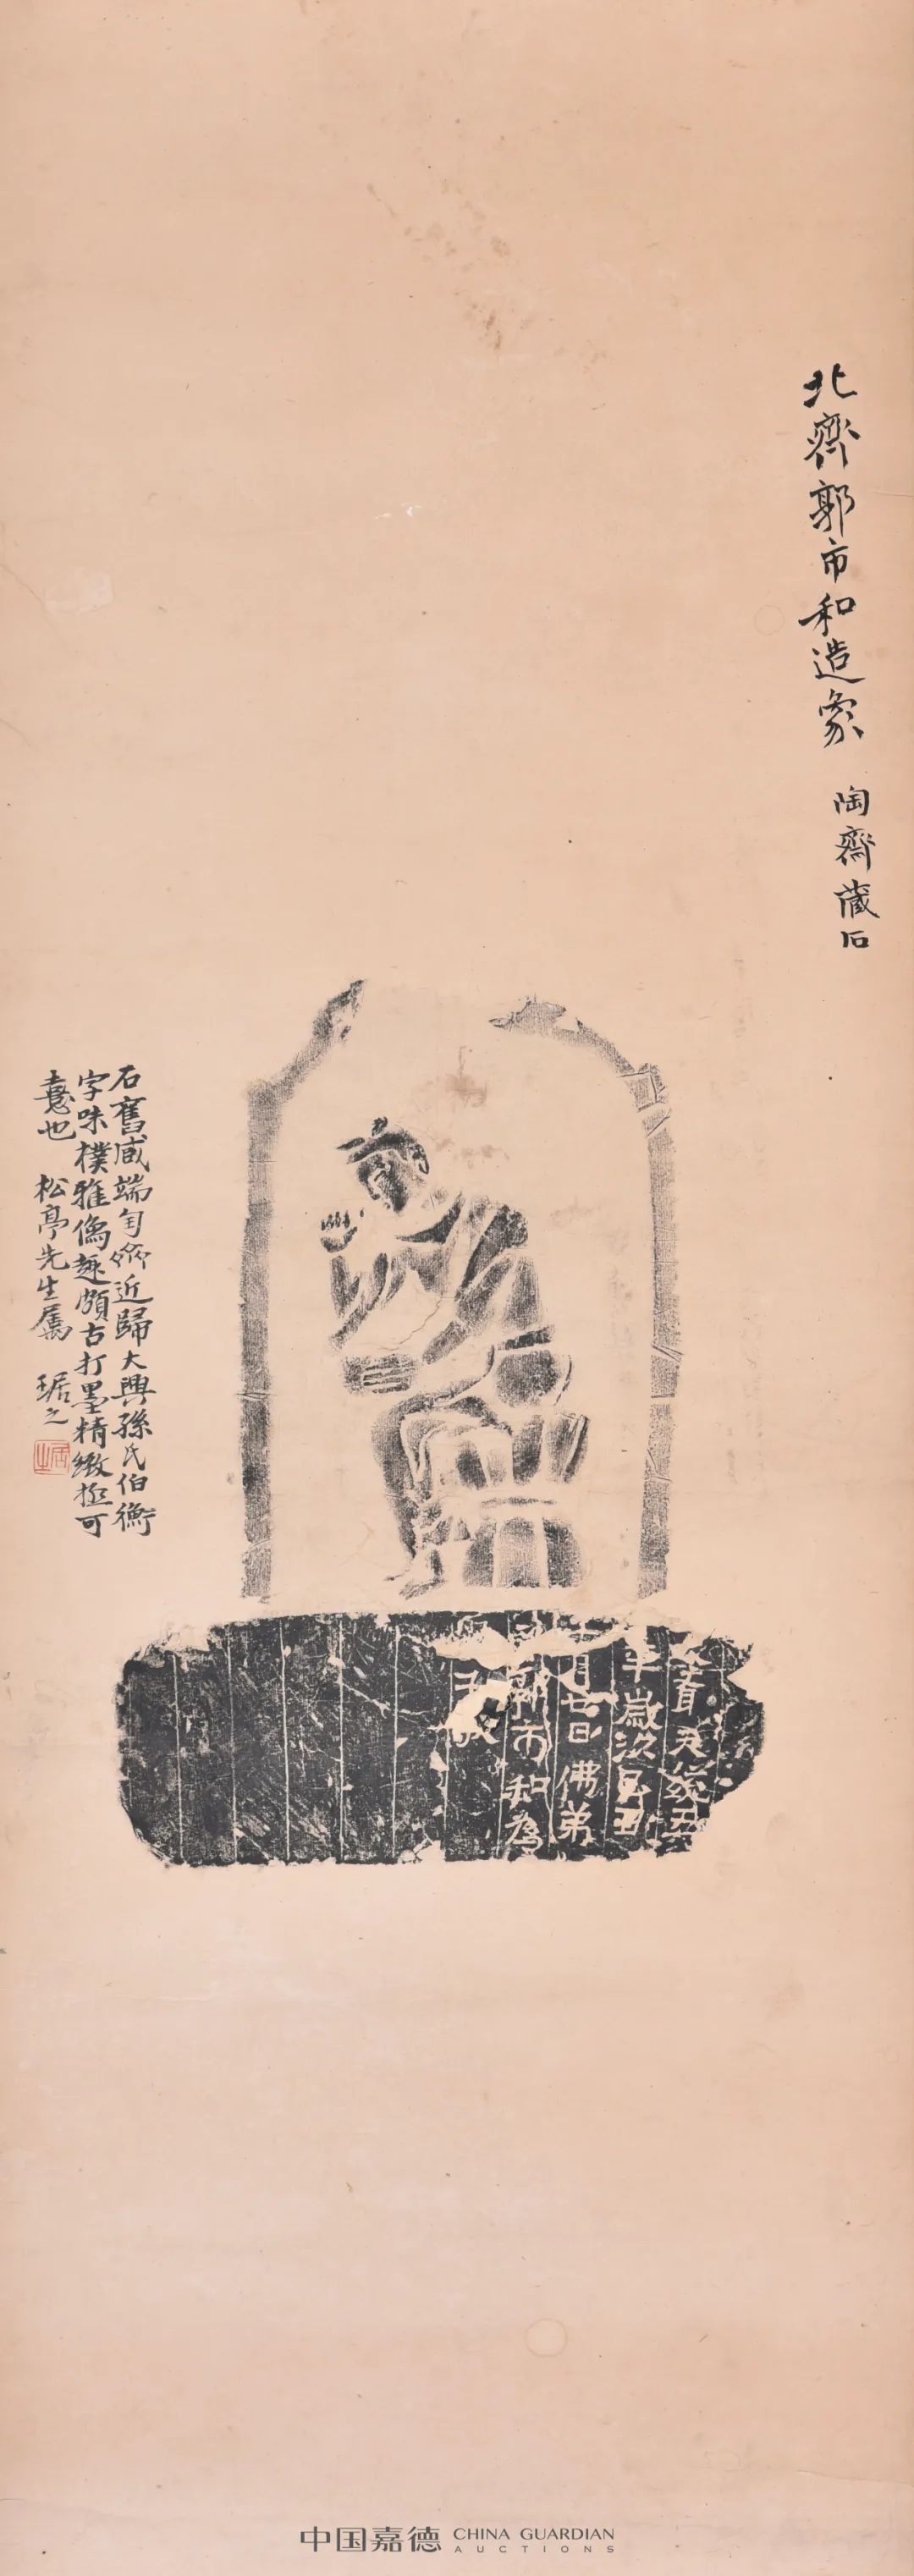 北齊郭市和造象
陶齋藏石
石舊臧端匋齋近歸大興孫氏伯衡
字味樸雅僞趣頗古打墨精緻極可
憙也 松亭先生屬 琚之
首天統
年歲次乙丑
月廿日佛弟
郭市和為
中国嘉德 CHINA GUARDIAN
AUCTIONS